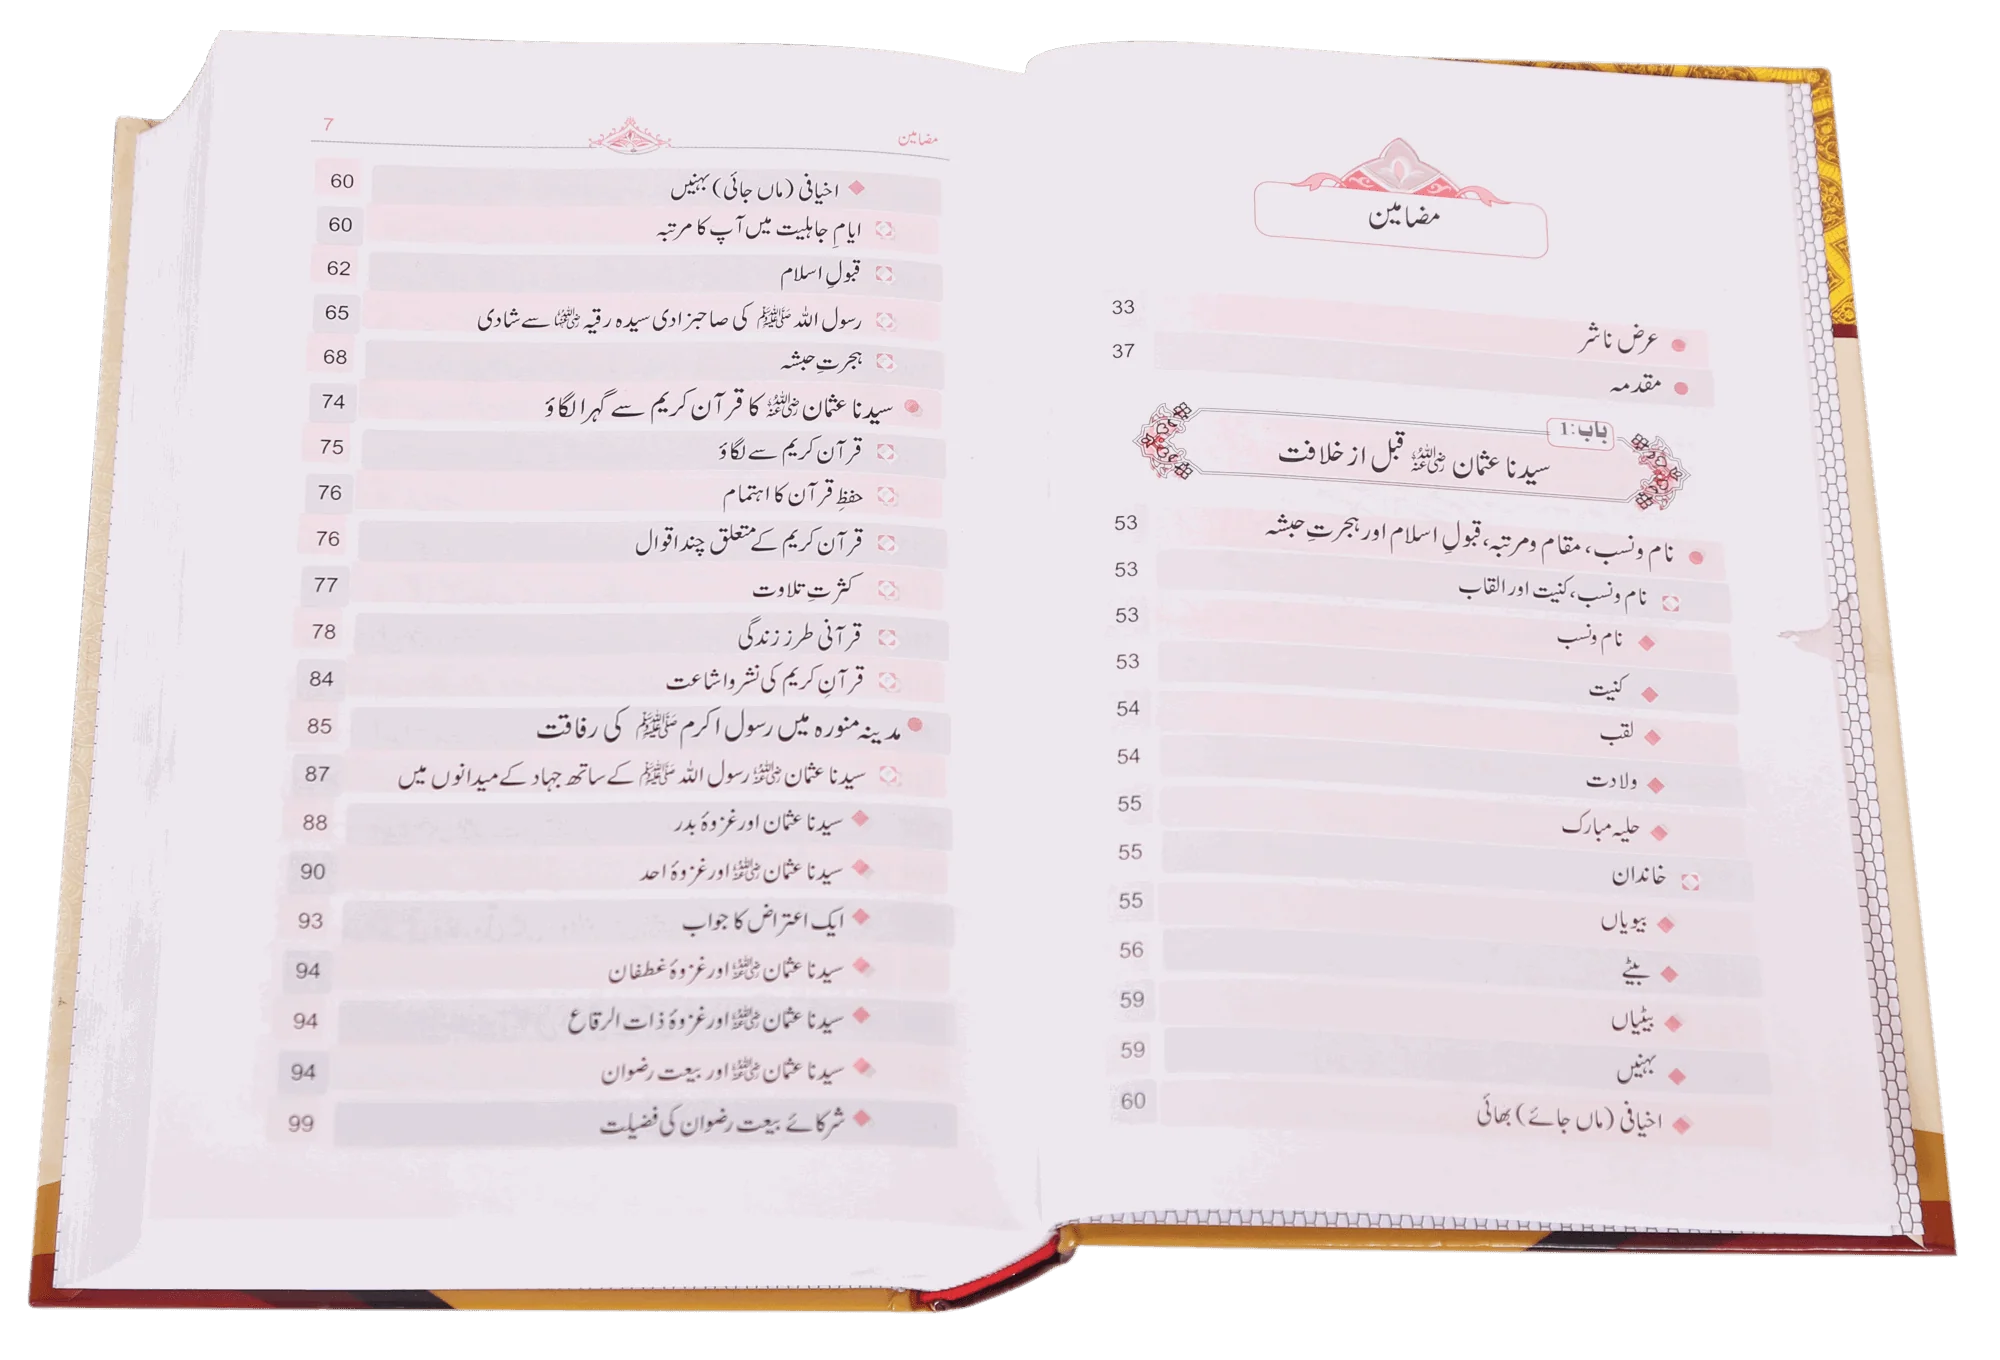 مضامین
عرض ناشر 33
مقدمہ 37
باب:1
سیدنا عثمان رضی اللہ عنہ قبل از خلافت
نام و نسب، مقام و مرتبہ، قبولِ اسلام اور ہجرتِ حبشہ 53
نام و نسب، کنیت اور القاب 53
نام و نسب 53
کنیت 53
لقب 54
ولادت 54
حلیہ مبارک 55
خاندان 55
بیویاں 55
بیٹے 56
بیٹیاں 59
بہنیں 59
اخیافی (ماں جائے) بھائی 60
مضامین 7
اخیافی (ماں جائی) بہنیں 60
ایامِ جاہلیت میں آپ کا مرتبہ 60
قبولِ اسلام 62
رسول اللہ ﷺ کی صاحبزادی سیدہ رقیہ رضی اللہ عنہا سے شادی 65
ہجرتِ حبشہ 68
سیدنا عثمان رضی اللہ عنہ کا قرآن کریم سے گہرا لگاؤ 74
قرآن کریم سے لگاؤ 75
حفظِ قرآن کا اہتمام 76
قرآن کریم کے متعلق چند اقوال 76
کثرتِ تلاوت 77
قرآنی طرز زندگی 78
قرآنِ کریم کی نشر و اشاعت 84
مدینہ منورہ میں رسول اکرم ﷺ کی رفاقت 85
سیدنا عثمان رضی اللہ عنہ رسول اللہ ﷺ کے ساتھ جہاد کے میدانوں میں 87
سیدنا عثمان اور غزوۂ بدر 88
سیدنا عثمان رضی اللہ عنہ اور غزوۂ احد 90
ایک اعتراض کا جواب 93
سیدنا عثمان رضی اللہ عنہ اور غزوۂ غطفان 94
سیدنا عثمان رضی اللہ عنہ اور غزوۂ ذات الرقاع 94
سیدنا عثمان رضی اللہ عنہ اور بیعت رضوان 94
شرکائے بیعت رضوان کی فضیلت 99